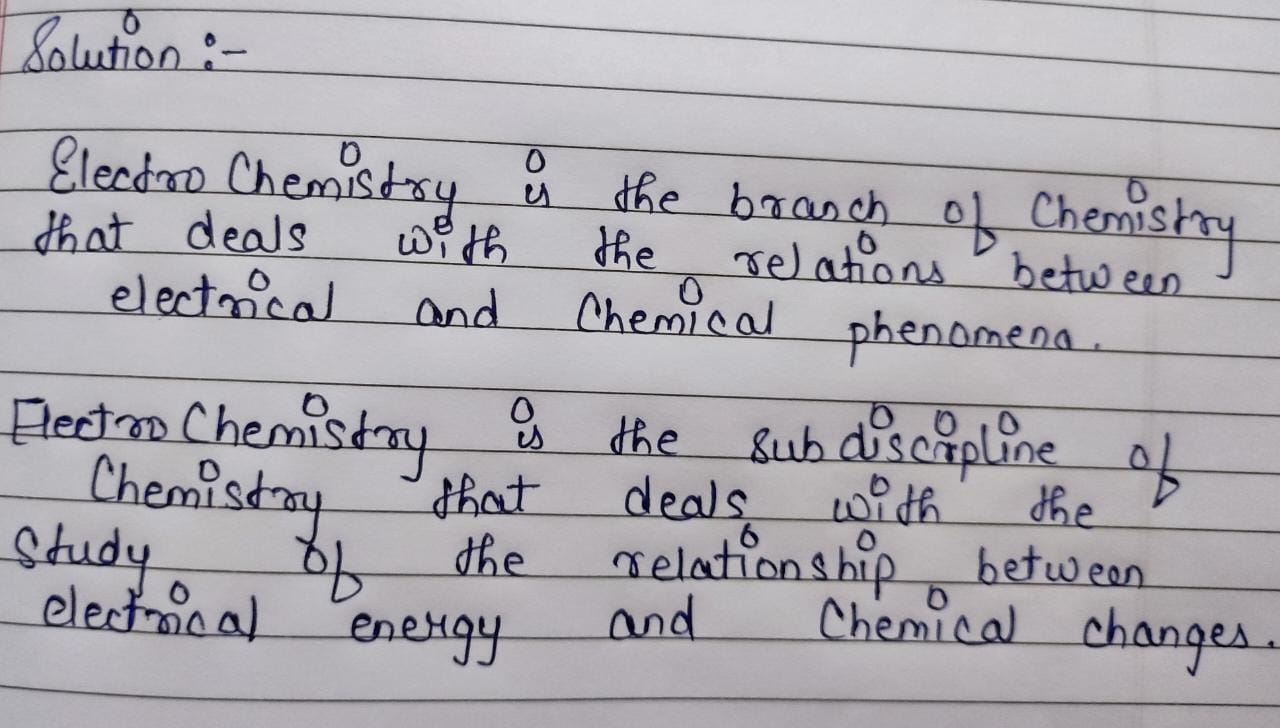 Solution :-
Electro Chemistry is the branch of Chemistry
that deals with the relations between
electrical and Chemical phenomena.
Electro Chemistry is the sub discipline of
Chemistry that deals with the
Study of the relationship between
electrical energy and Chemical changes.